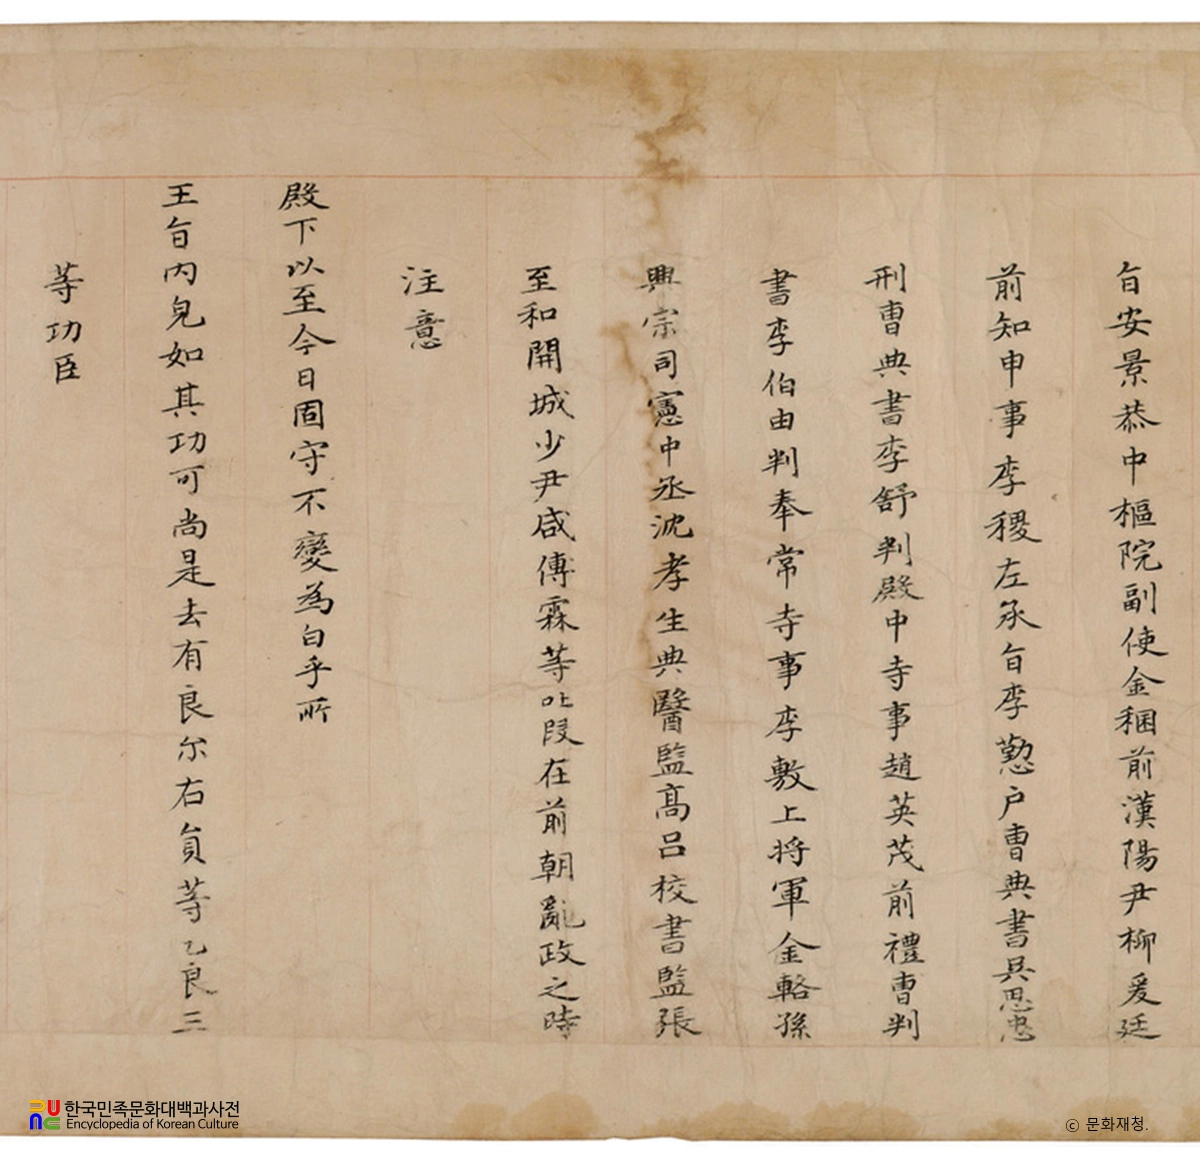 旨安景恭中樞院副使金稛前漢陽尹柳爰廷
前知申事李稷左承旨李懃户曹典書吳思忠
刑曹典書李舒判殿中寺事趙英茂前禮曹判
書李伯由判奉常寺事李敷上将軍金輅孫
興宗司憲中丞沈孝生典醫監高呂校書監張
至和開城少尹咸傅霖等叱段在前朝亂政之時
注意
殿下以至今日固守不變為白乎所
王旨內皃如其功可尚是去有良尔右員等乙良三
等功臣
한국민족문화대백과사전
Encyclopedia of Korean Culture
ⓒ 문화재청.